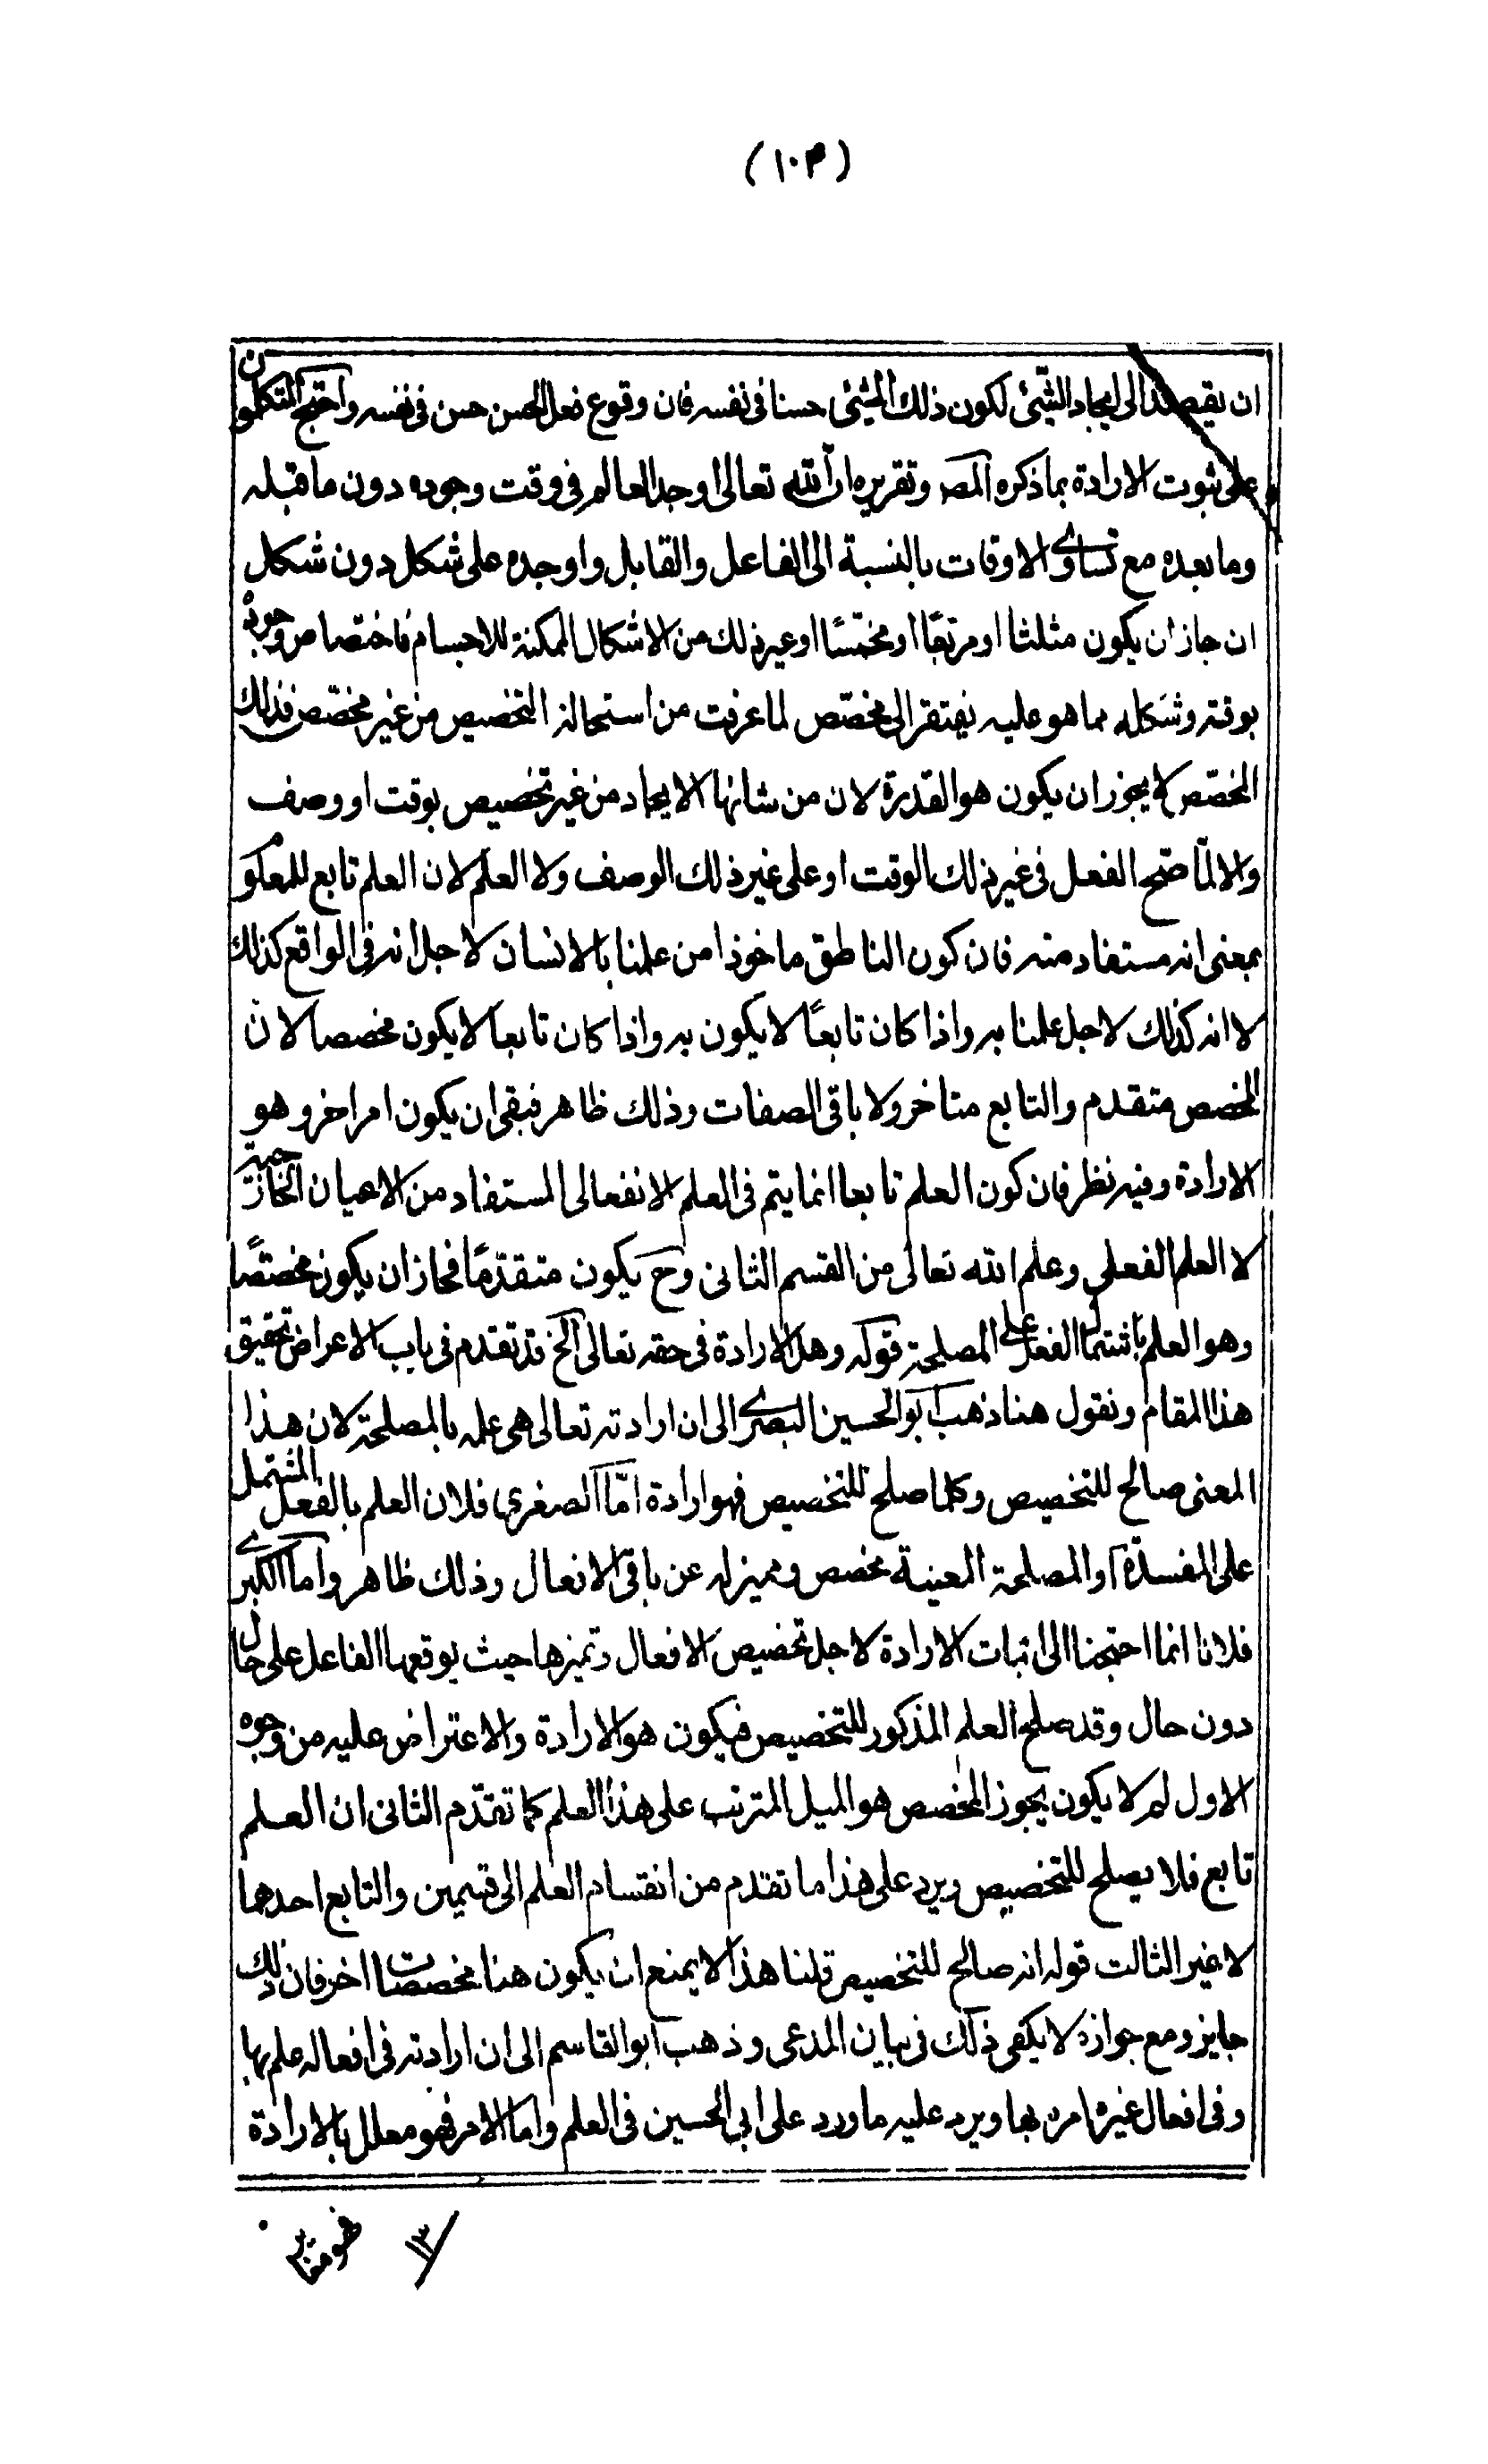 (١٠٣)
ان يقصد الى ايجاد الشئ لكون ذلك الشئ حسنا فى نفسه فان وقوع فعل الحسن حسن فى نفسه واحتج المتكلمون
على ثبوت الارادة بما ذكره المص وتقريره ان الله تعالى اوجد العالم فى وقت وجوده دون ما قبله
وما بعده مع تساوى الاوقات بالنسبة الى الفاعل والقابل واوجده على شكل دون شكل
ان جاز ان يكون مثلثا او مربعًا او مخمّسًا او غير ذلك من الاشكال الممكنة للاجسام فاختصاص وجوده
بوقته وشكله مما هو عليه يفتقر الى مخصّص لما عرفت من استحالة التخصيص من غير مخصّص فذلك
المخصّص لا يجوز ان يكون هو القدرة لان من شانها الايجاد من غير تخصيص بوقت او وصف
والا لمّا صحّ الفعل فى غير ذلك الوقت او على غير ذلك الوصف ولا العلم لان العلم تابع للمعلوم
بمعنى انه مستفاد منه فان كون الناطق ماخوذا من علمنا بالانسان لاجل انه فى الواقع كذلك
لا انه كذلك لاجل علمنا به واذا كان تابعًا لا يكون به واذا كان تابعا لا يكون مخصصا لان
المخصص متقدم والتابع متاخر ولا باقى الصفات وذلك ظاهر فبقى ان يكون امرا اخر وهو
الارادة وفيه نظر فان كون العلم تابعا انما يتم فى العلم الانفعالى المستفاد من الاعيان الخارجية
لا العلم الفعلى وعلم الله تعالى من القسم الثانى وح يكون متقدّمًا فجاز ان يكون مخصّصًا
وهو العلم باشتمال الفعل على المصلحة قوله وهل الارادة فى حقه تعالى الخ قد تقدم فى باب الاعراض تحقيق
هذا المقام ونقول هنا ذهب ابو الحسين البصرى الى ان ارادته تعالى هى علمه بالمصلحة لان هذا
المعنى صالح للتخصيص وكلما صلح للتخصيص فهو ارادة امّا الصغرى فلان العلم بالفعل المشتمل
على المفسدة او المصلحة المعينة مخصص ومميز له عن باقى الافعال وذلك ظاهر واما الكبرى
فلانا انما احتجنا الى اثبات الارادة لاجل تخصيص الافعال وتميزها حيث يوقعها الفاعل على حال
دون حال وقد صلح العلم المذكور للتخصيص فيكون هو الارادة والاعتراض عليه من وجوه
الاول لم لا يكون يجوز المخصص هو الميل المترتب على هذا العلم كما تقدّم الثانى ان العلم
تابع فلا يصلح للتخصيص ويرد على هذا ما تقدم من انقسام العلم الى قسمين والتابع احدهما
لا غير الثالث قوله انه صالح للتخصيص قلنا هذا لا يمنع ان يكون هنا مخصصات اخر فان ذلك
جايز ومع جوازه لا يكفى ذلك فى بيان المدعى وذهب ابو القاسم الى ان ارادته فى افعاله علمه بها
وفى افعال غيره امره بها ويرد عليه ما ورد على ابى الحسين فى العلم واما الامر فهو معلل بالارادة